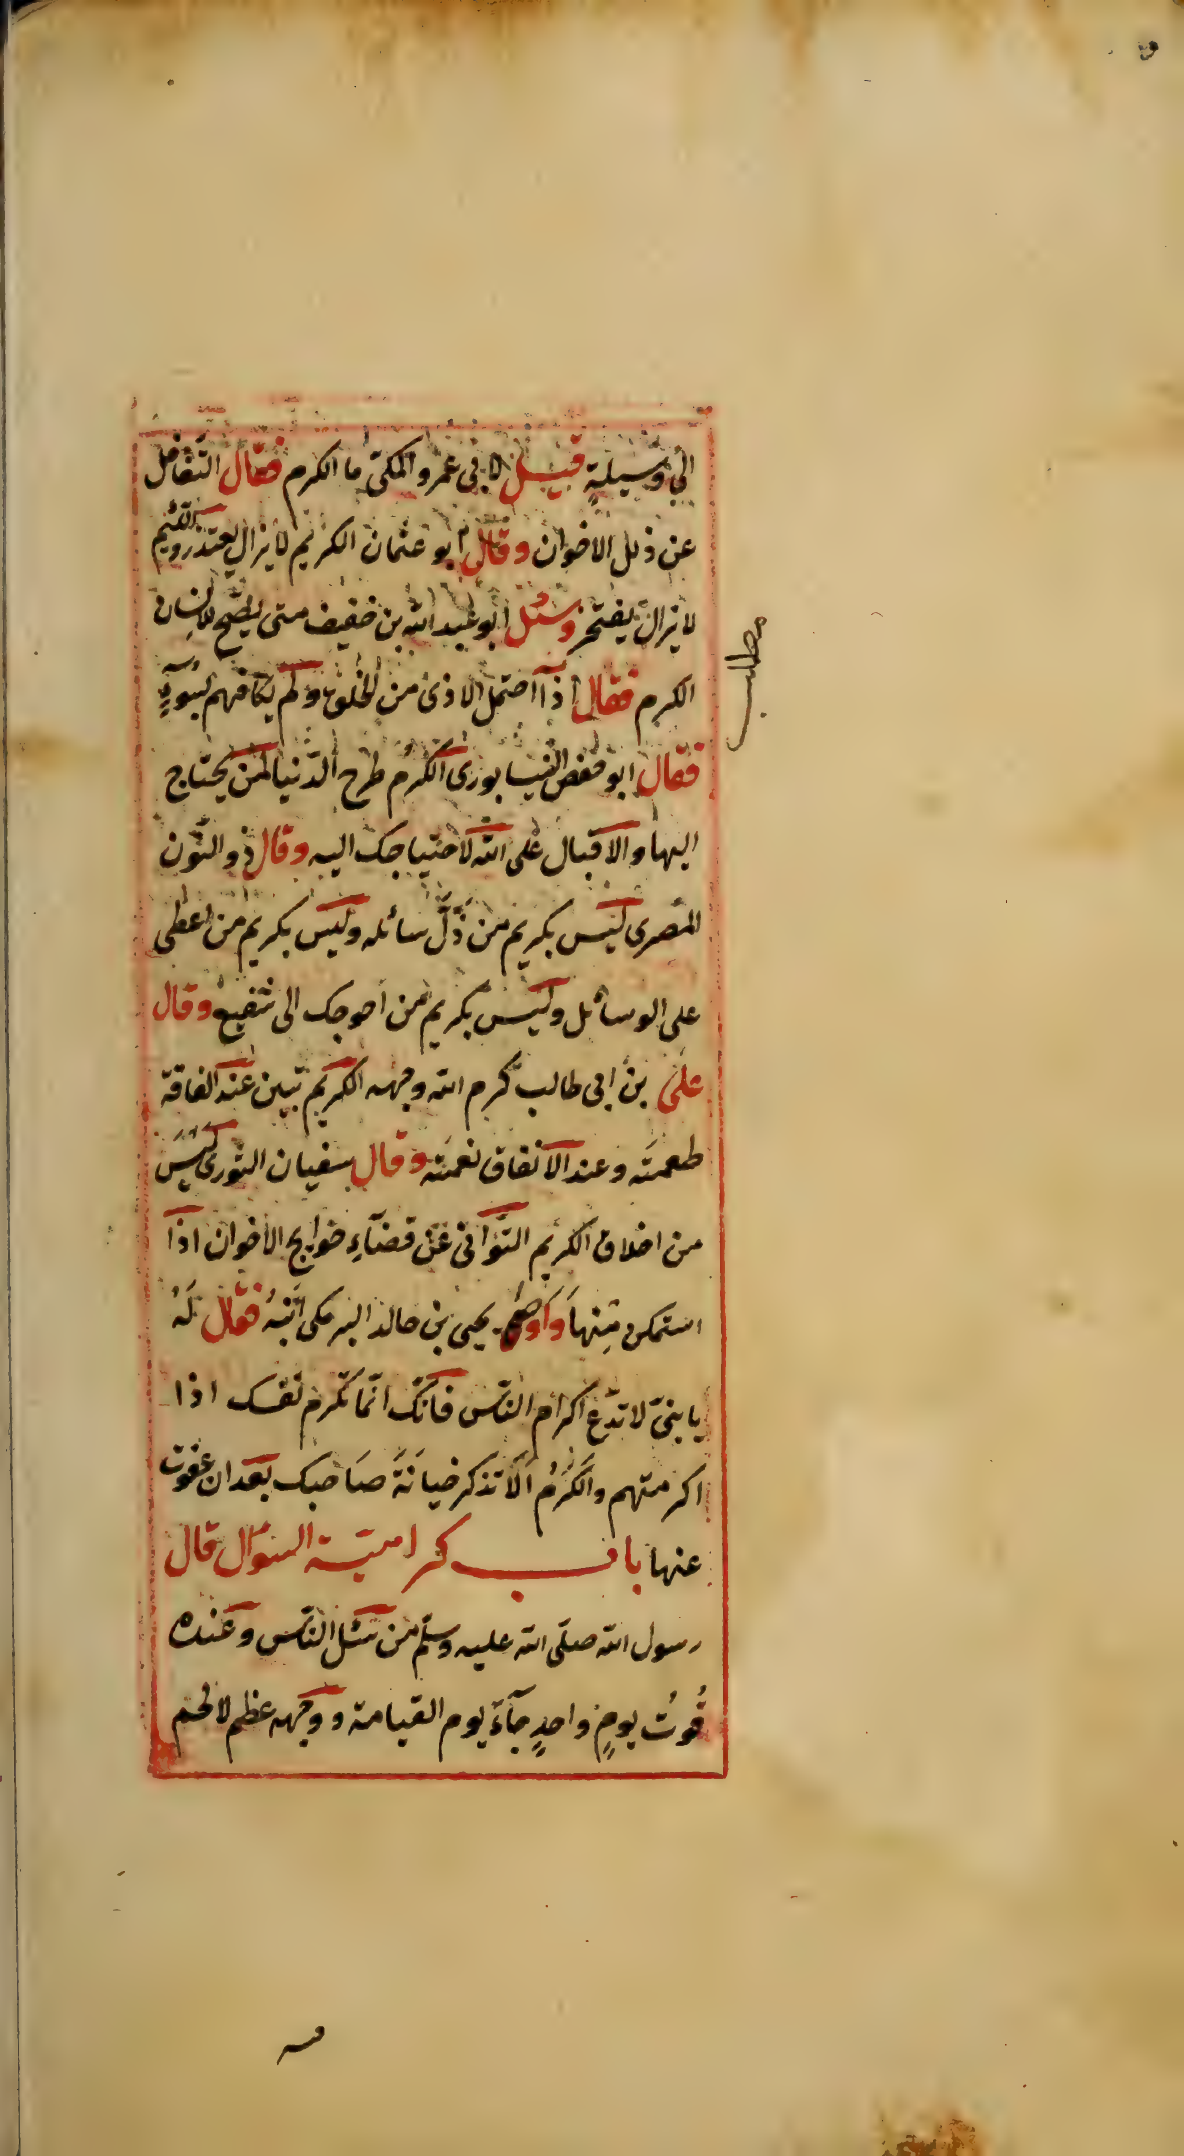 الى وسيلةٍ قيل لابى عمرو المكىّ ما الكرم فقال التغافل
عن ذلل الاخوان وقال ابو عثمان الكريم لا يزال يعتذر واللئيم
لا يزال يفتخر وسئل ابو عبد الله بن خفيف متى يصحّ للانسان
الكرم فقال اذا احتمل الاذى من الخلق ولم يكافهم بسوءٍ
فقال ابو حفص النيسابورى الكرم طرح الدّنيا لمن يحتاج
اليها والاقبال على الله لاحتياجك اليه وقال ذو النّون
المصرى ليس بكريم من ذَلَّ سائله وليس بكريم من اعطى
على الوسائل وليس بكريم من احوجك الى شفيع وقال
على بن ابى طالب كرم الله وجهه الكريم تبين عند الفاقة
طعمته وعند الانفاق نعمته وقال سفيان الثورى ليس
من اخلاق الكريم التّوانى عن قضآء حوايج الاخوان اذا
استمكن منها واوصى يحيى بن خالد البرمكى ابنه فقال لَهُ
يا بنىّ لا تدع اكرام النّاس فانّك انّما تكرم نفسك اذا
اكرمتهم والكَرَمُ اَلّا تذكر خيانَةَ صَاحبك بعد ان عفوت
عنها باب كراميّة السؤال قال
رسول الله صلّى الله عليه وسلّم من سئل النّاس وعنده
قُوتُ يومٍ واحدٍ جآءَ يوم القيامة ووجهه عظم لا لحم
مطلب